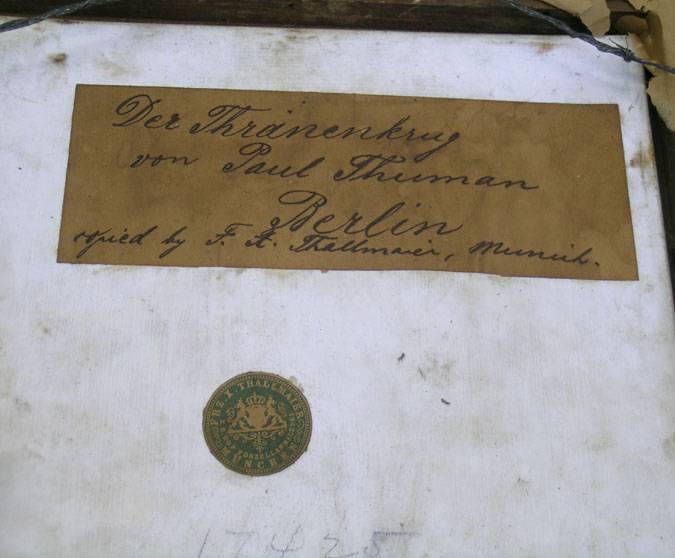 Der Thränenkrug
von Paul Thuman
Berlin
copied by F. X. Thallmaier, Munich.
FRZ. X. THALLMAIER
MÜNCHEN
17425